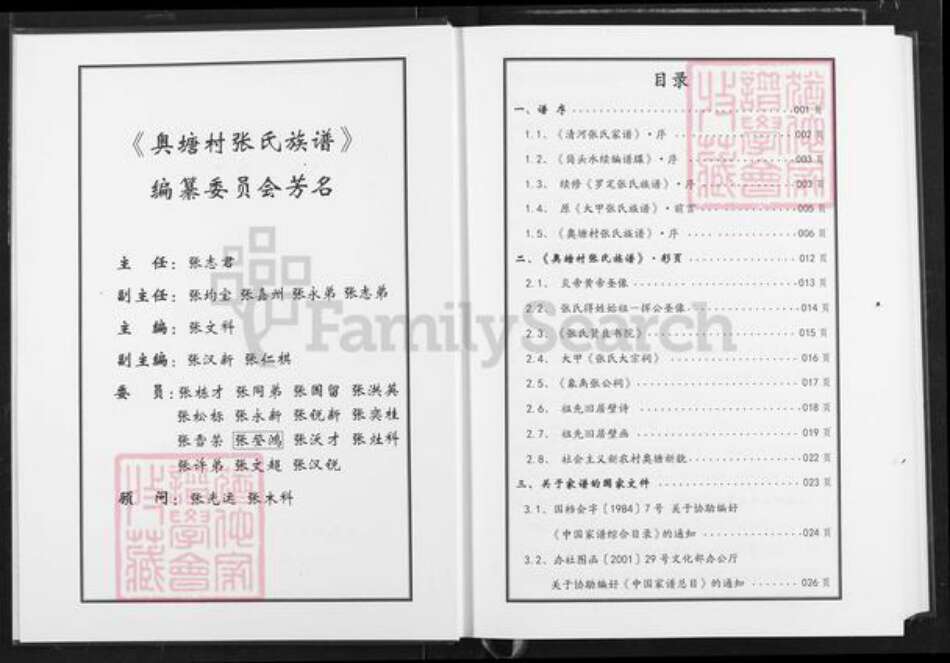 《奥塘村张氏族谱》
编纂委员会芳名
主 任：张志君
副主任：张均宝 张嘉州 张永弟 张志弟
主 编：张文科
副主编：张汉新 张仁棋
委 员：张栋才 张同弟 张国留 张洪英
张松标 张永新 张锐新 张奕桂
张香荣 张登鸿 张沃才 张灶科
张许弟 张文超 张汉锐
顾 问：张光运 张木科
FamilySearch
目录
一、谱 序 001 页
1.1、《清河张氏家谱》·序 002 页
1.2、《筒头水续编谱牒》·序 003 页
1.3、续修《罗定张氏族谱》·序 003 页
1.4、原《大甲张氏族谱》·前言 005 页
1.5、《奥塘村张氏族谱》·序 006 页
二、《奥塘村张氏族谱》·彩页 012 页
2.1、炎帝黄帝圣像 013 页
2.2、张氏得姓始祖一挥公圣像 014 页
2.3、《张氏贤良书院》 015 页
2.4、大甲《张氏大宗祠》 016 页
2.5、《象离张公祠》 017 页
2.6、祖先旧居壁诗 018 页
2.7、祖先旧居壁画 019 页
2.8、社会主义新农村奥塘新貌 022 页
三、关于家谱的国家文件 023 页
3.1、国档会字〔1984〕7 号 关于协助编好
《中国家谱综合目录》的通知 024 页
3.2、办社图函〔2001〕29 号文化部办公厅
关于协助编好《中国家谱总目》的通知 026 页